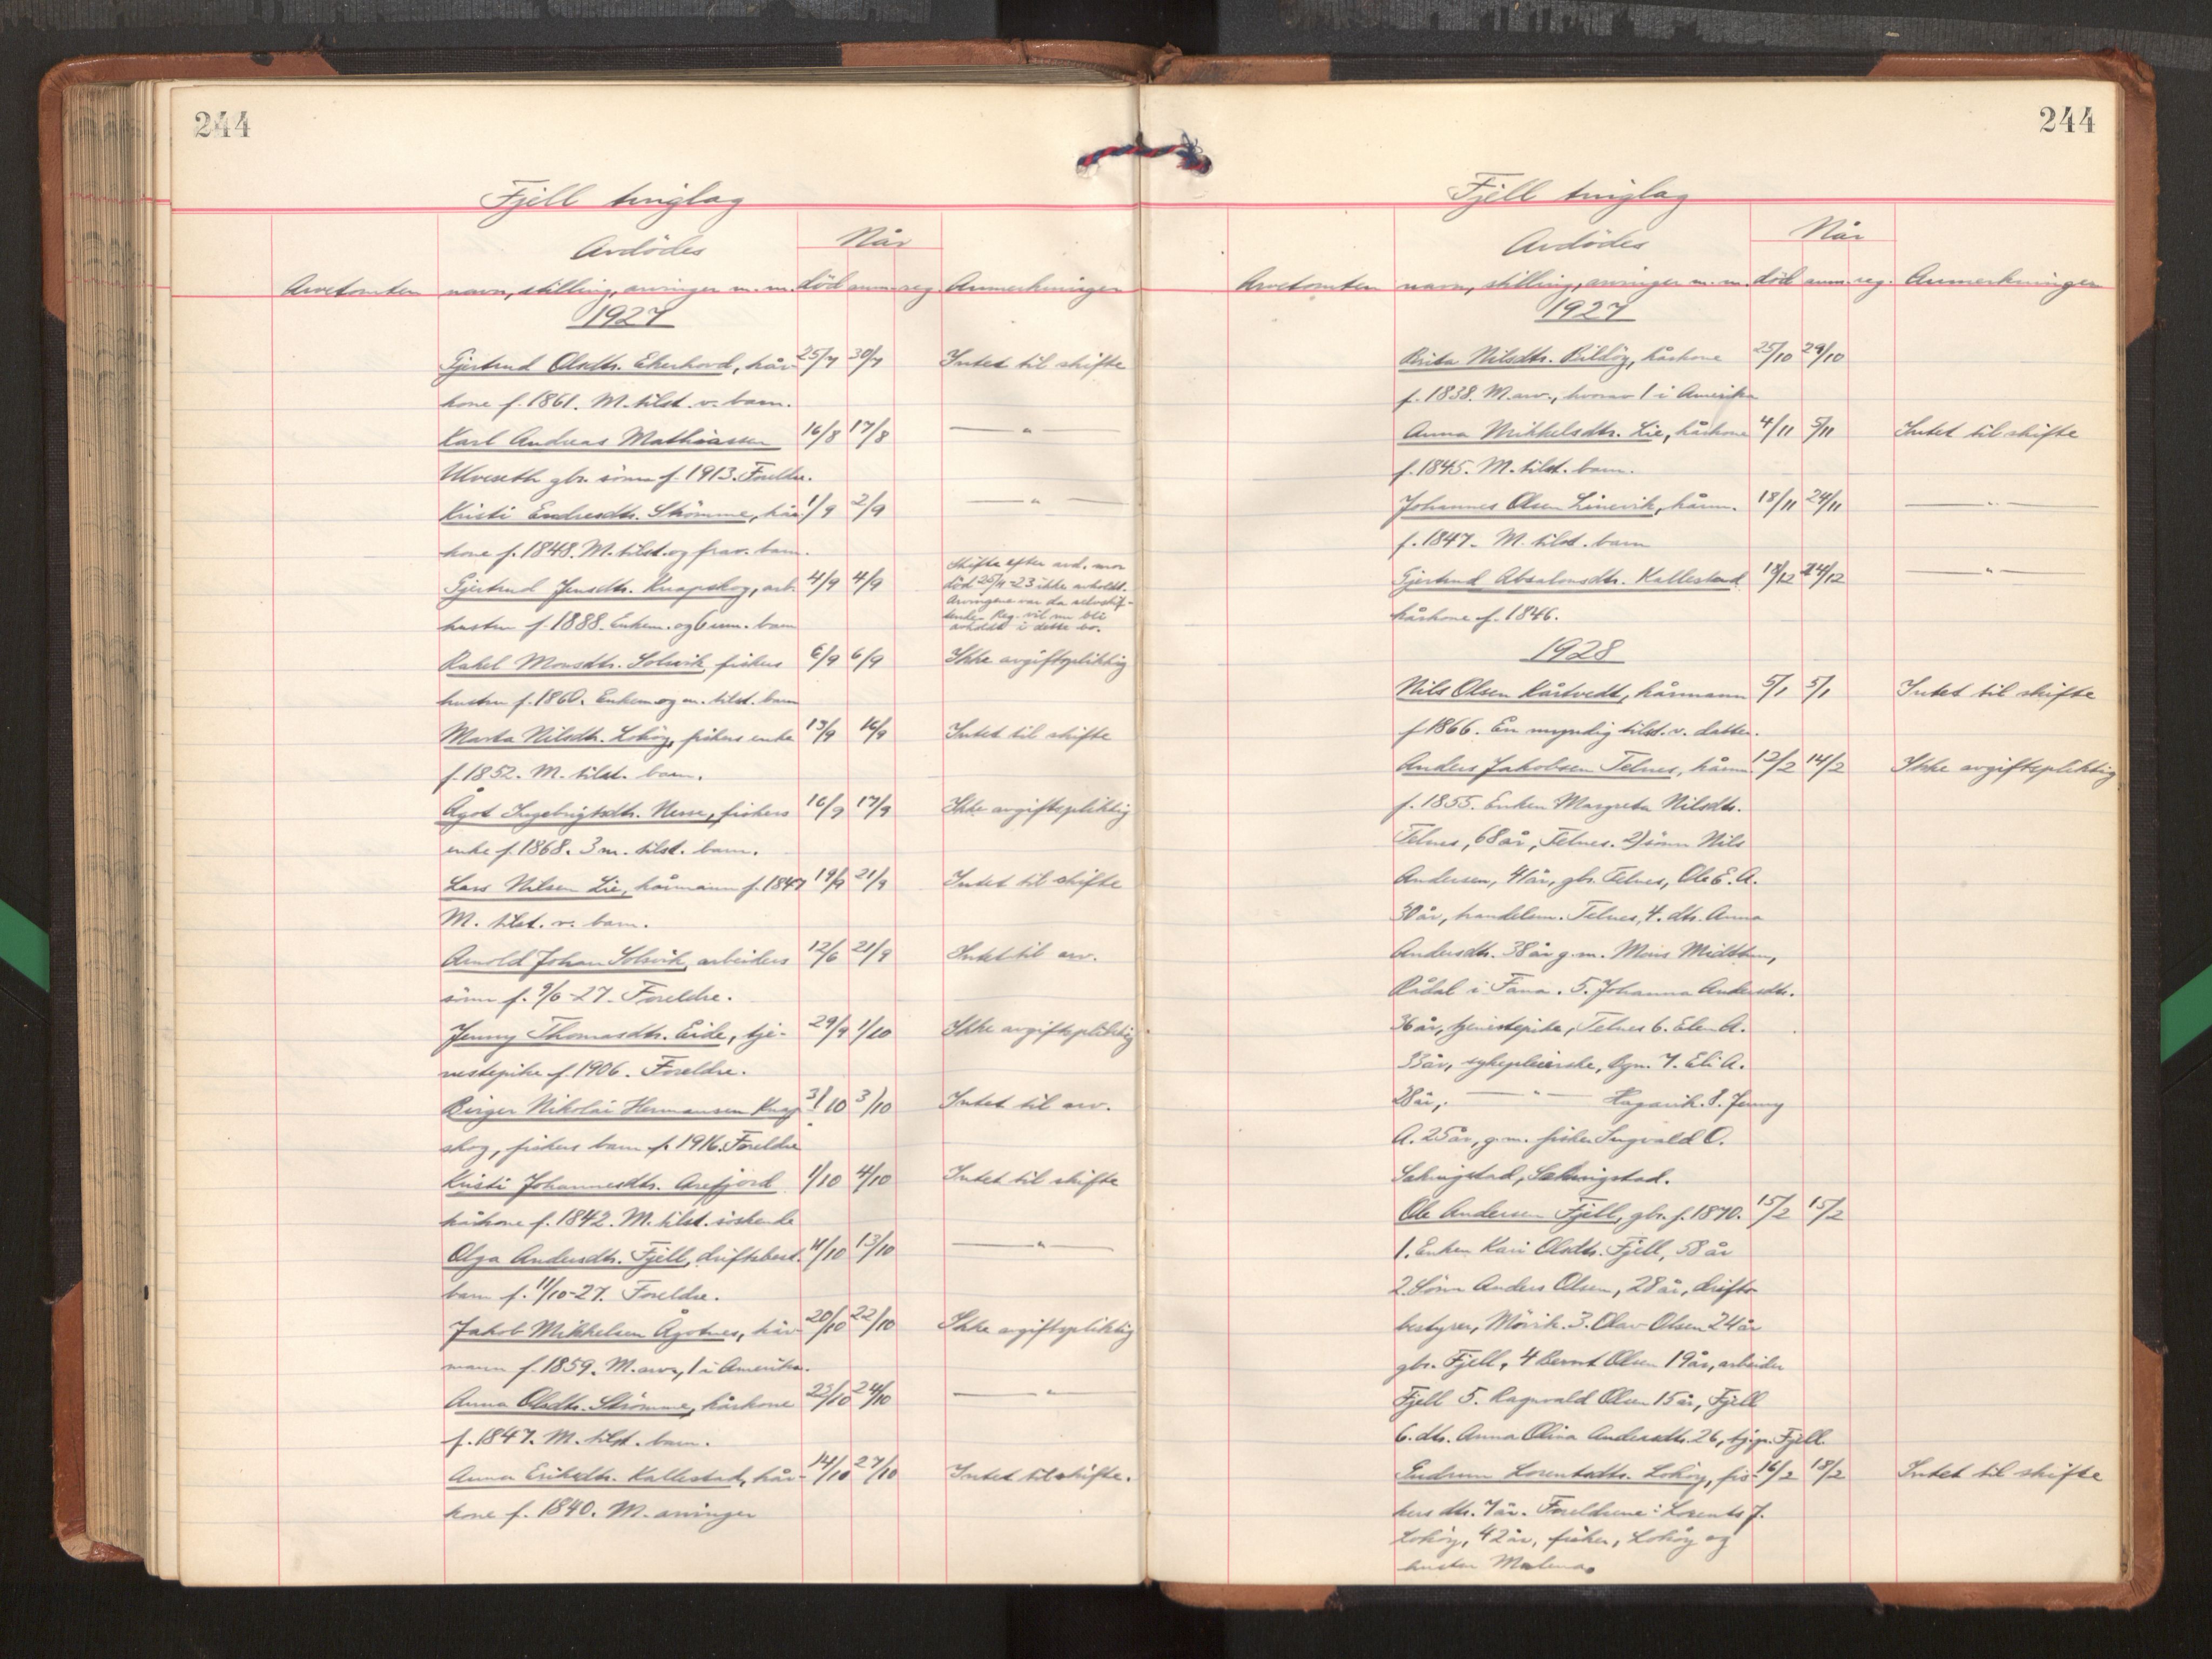 244
Fjell tinglag
Avdödes
Når
Arvetomten navn, stilling, arvinger m.m. död anm. reg. Anmerkninger
1927
Gjertrud Olsdtr. Ekerhovd, kår- 25/7 30/7 Intet til skifte
kone f. 1861. M. tilst. v. barn.
Karl Andreas Mathiassen 16/8 17/8 — " —
Ulveseth gbr. sönn f. 1913. Foreldre.
Kristi Endresdtr. Strömme, kår- 1/9 2/9 — " —
kone f. 1848. M. tilst. og frav. barn.
Gjertrud Jensdtr. Knapskog, arb. 4/9 4/9 Skifte efter avd. mor
död 25/11-23 ikke avholdt.
Arvingene var da selvskif-
tende. Reg. vil nu bli
avholdt i dette bo.
hustru f. 1888. Enkem. og 6 um. barn
Rakel Monsdtr. Solsvik, fiskers 6/9 6/9 Ikke avgiftspliktig
hustru f. 1860. Enkem. og m. tilst. barn
Marta Nilsdtr. Lokøy, fiskers enke 13/9 16/9 Intet til skifte
f. 1852. M. tilst. barn.
Ågot Ingebrigtsdtr. Nesse, fiskers 16/9 17/9 Ikke avgiftspliktig
enke f. 1868. 3 m. tilst. barn.
Lars Nilsen Lie, kårmann f. 1847 19/9 21/9 Intet til skifte
M. tilst. v. barn.
Arnold Johan Solsvik, arbeiders 12/6 21/9 Intet til arv.
sönn f. 9/6-27. Foreldre.
Jenny Thomasdtr. Eide, tje- 29/9 1/10 Ikke avgiftspliktig
nestepike f. 1906. Foreldre.
Birger Nikolai Hermansen Knap 3/10 3/10 Intet til arv.
skog, fiskers barn f. 1916. Foreldre
Kristi Johannesdtr. Arefjord 1/10 4/10 Intet til skifte
kårkone f. 1842. M. tilst. söskende
Olga Andersdtr. Fjell, driftsbest. 11/10 13/10 — " —
barn f. 11/10-27. Foreldre.
Jakob Mikkelsen Ågotnes, kår- 20/10 22/10 Ikke avgiftspliktig
mann f. 1859. M. arv., 1 i Amerika.
Anna Olsdtr. Strömme, kårkone 23/10 24/10 — " —
f. 1847. M. tilst. barn.
Anna Eriksdtr. Kallestad, kår- 14/10 27/10 Intet til skifte.
kone f. 1840. M. arvinger
244
Fjell tinglag
Avdödes
Når
Arvetomten navn, stilling, arvinger m.m. död anm. reg. Anmerkninger
1927
Brita Nilsdtr. Bildöy, kårkone 25/10 29/10
f. 1838. M. arv., hvorav 1 i Amerika
Anna Mikkelsdtr. Lie, kårkone 4/11 5/11 Intet til skifte
f. 1845. M. tilst. barn.
Johannes Olsen Linevik, kårm. 18/11 24/11 — " —
f. 1847. M. tilst. barn
Gjertrud Absalonsdtr. Kallestad 18/12 24/12 — " —
kårkone f. 1846.
1928
Nils Olsen Kårtvedt, kårmann 5/1 5/1 Intet til skifte
f. 1866. En myndig tilst. v. datter.
Anders Jakobsen Telnes, kårm. 12/2 14/2 Ikke avgiftspliktig
f. 1855. Enken Margreta Nilsdtr.
Telnes, 68 år, Telnes. 2) sönn Nils
Andersen, 41 år, gbr. Telnes, Ole E. A.
30 år, handelsm. Telnes, 4. dtr. Anna
Andersdtr. 38 år g.m. Mons Midttun,
Rådal i Fana. 5. Johanna Andersdtr.
36 år, tjenestepike, Telnes 6. Elen A.
33 år, sykepleierske, Bgn. 7. Eli A.
28 år, — " — Hagavik. 8. Jenny
A. 25 år, g.m. fisker Ingvald O.
Sekingstad, Sekingstad.
Ole Andersen Fjell, gbr. f. 1870. 15/2 15/2
1. Enken Kari Olsdtr. Fjell, 58 år
2. Sönn Anders Olsen, 28 år, drifts-
bestyrer, Mövik. 3. Olav Olsen 24 år
gbr. Fjell, 4 Bernt Olsen 19 år, arbeider
Fjell 5. Ragnvald Olsen 15 år, Fjell
6. dtr. Anna Olina Andersdtr. 26, tj.p. Fjell.
Gudrun Lorentsdtr. Loköy, fis- 16/2 18/2 Intet til skifte
kers dtr. 7 år. Foreldrene: Lorents J.
Loköy, 42 år, fisker, Loköy og
hustru Malena.